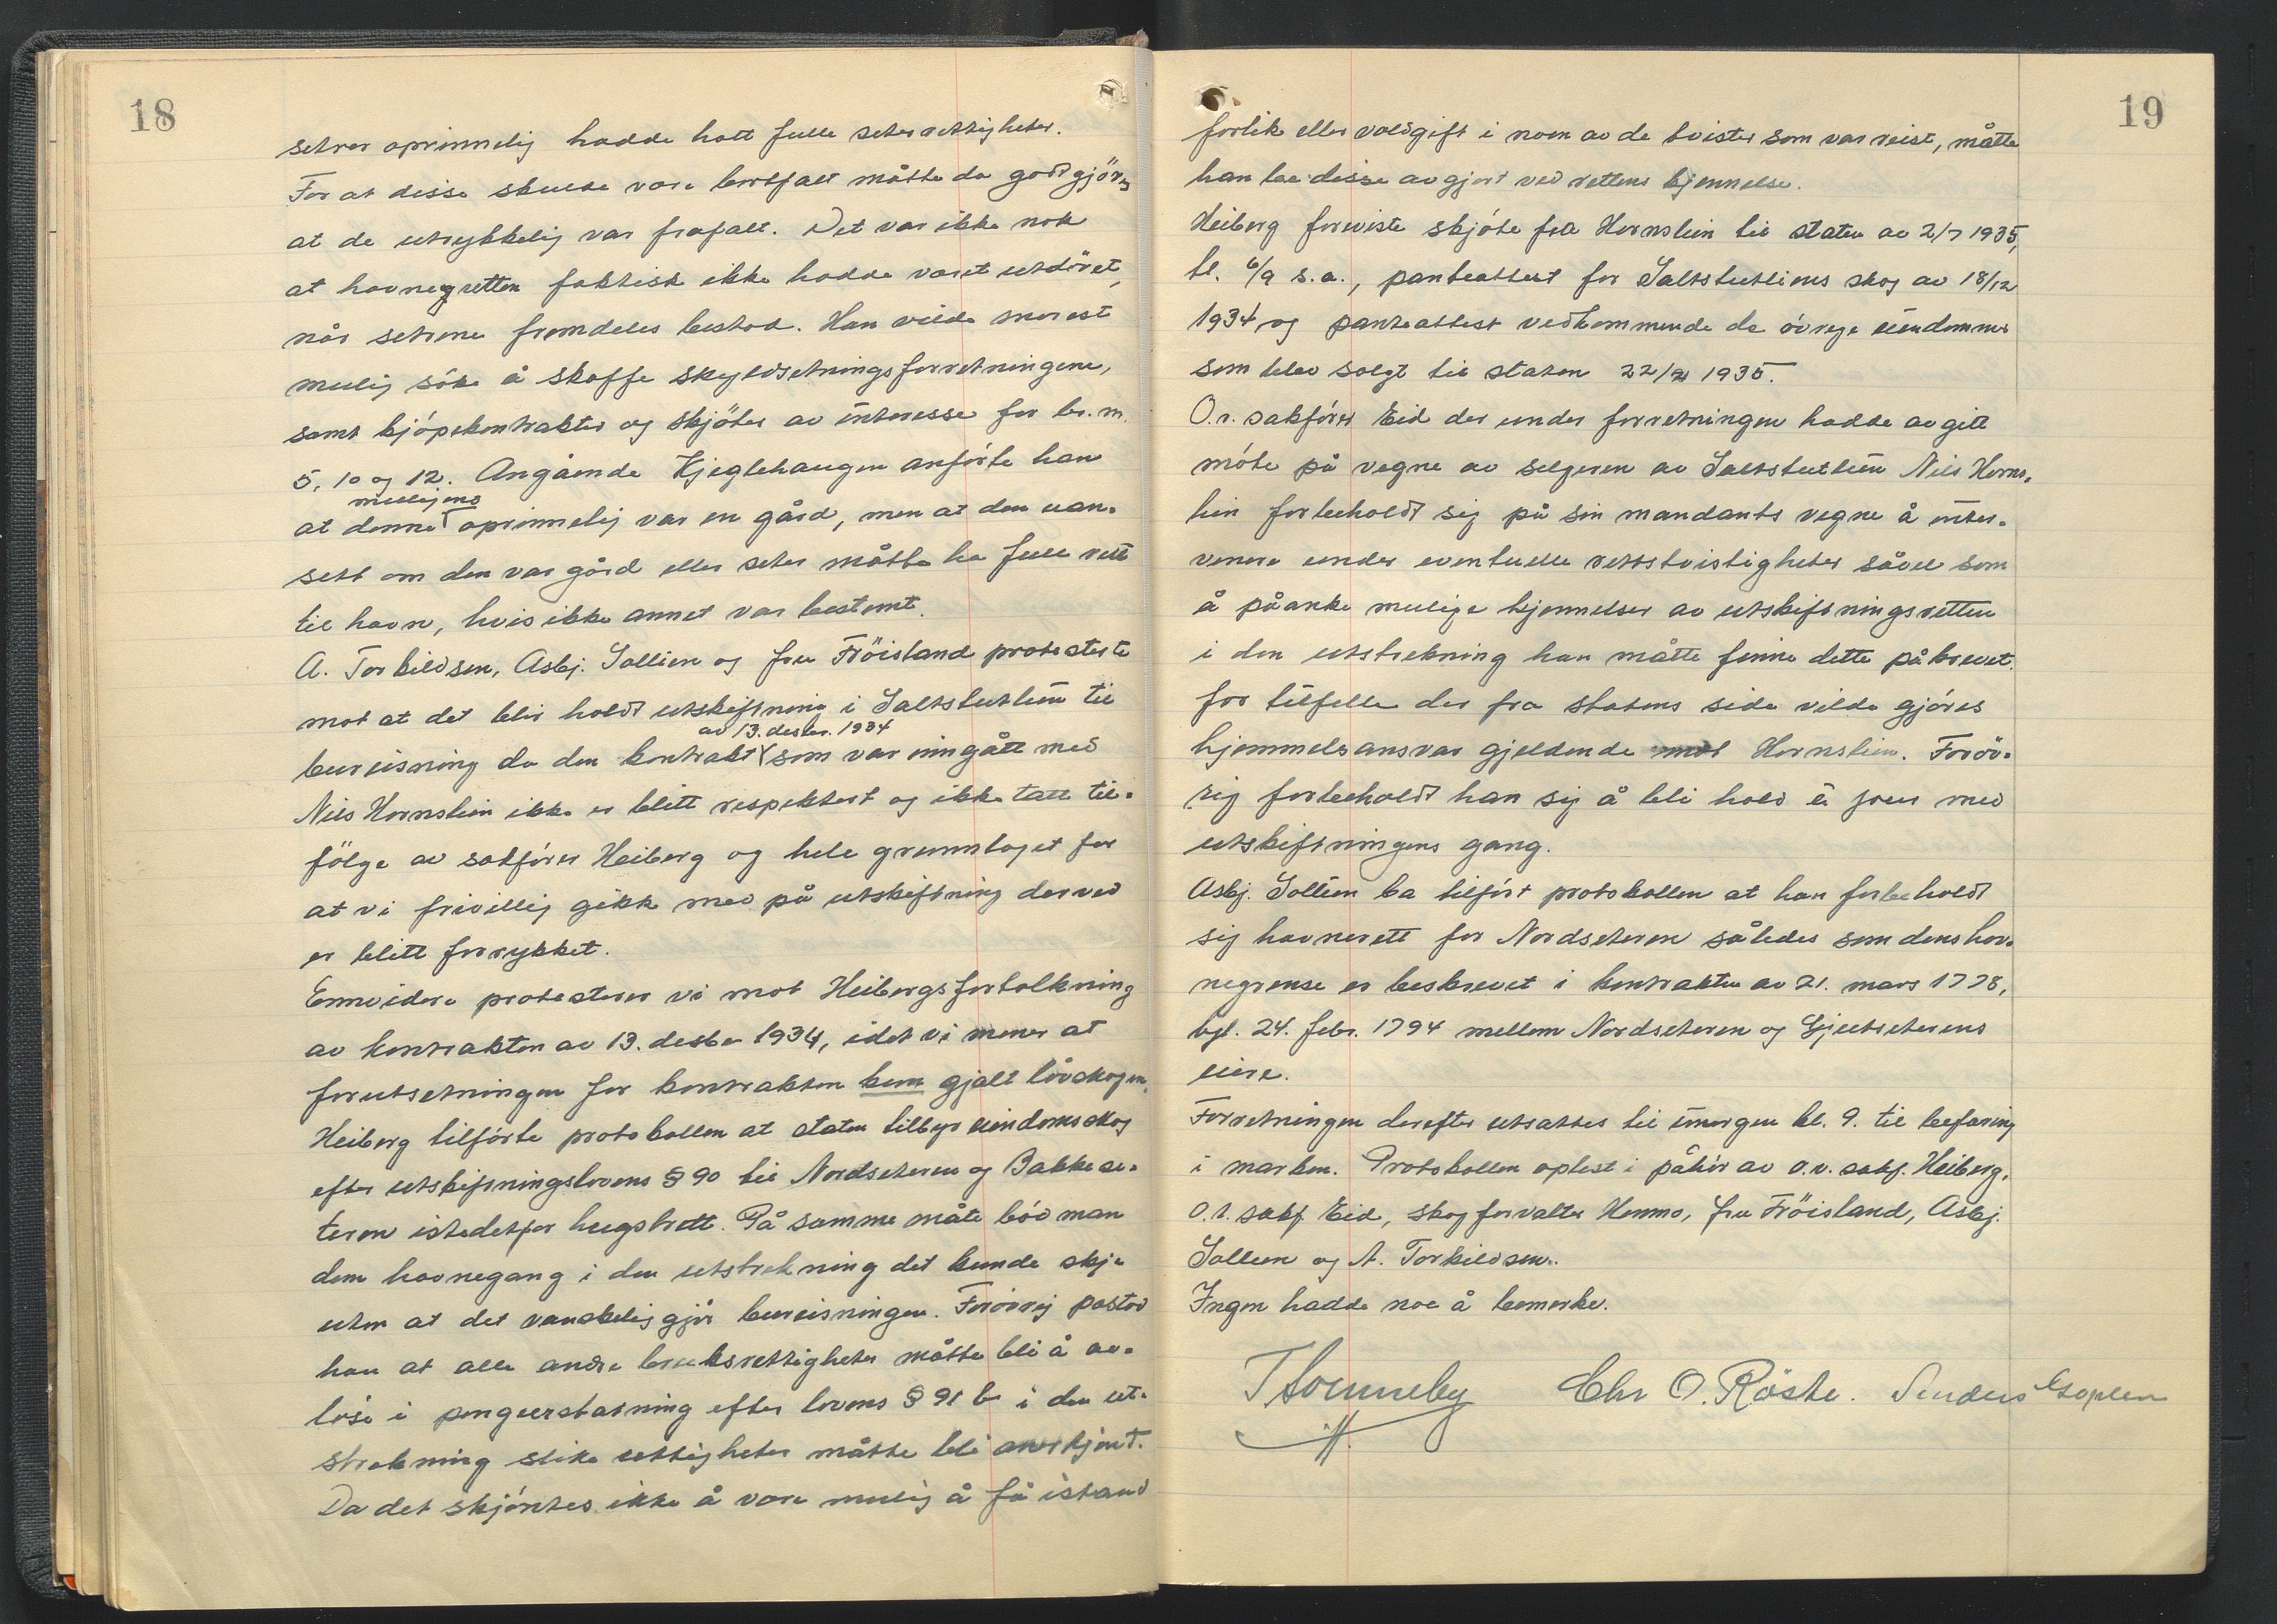 18
setrer oprinnelig hadde hatt fulle seterrettigheter.
For at disse skulde være bortfalt måtte da godtgjöres
at de utrykkelig var frafalt. Det var ikke nok
at havneretten faktisk ikke hadde været utövet,
når setrene fremdeles bestod. Han vilde snarest
mulig söke å skaffe skyldsetningsforretningene,
samt kjöpekontrakter og skjöter av interesse for br. nr.
5, 10 og 12. Angående Kjeglehaugen anförte han
muligens
at denne oprinnelig var en gård, men at den uan-
sett om den var gård eller seter måtte ha full rett
til havn, hvis ikke annet var bestemt.
A. Torkildsen, Asbj. Sollien og fru Fröisland protesterte
mot at det blir holdt utskiftning i Saltstutlien til
av 13. desbr. 1934
bureisning da den kontrakt som var inngått med
Nils Hornslien ikke er blitt respektert og ikke tatt til-
fölge av sakförer Heiberg og hele grunnlaget for
at vi frivillig gikk med på utskiftning derved
er blitt forrykket.
Ennvidere protesterer vi mot Heibergs fortolkning
av kontrakten av 13. desbr 1934, idet vi mener at
forutsetningen for kontrakten kun gjalt lövskogen.
Heiberg tilförte protokollen at staten tilbyr eiendomsskog
efter utskiftningslovens § 90 til Nordseteren og Bakkese-
teren istedetfor hugstrett. På samme måte böd man
dem havnegang i den utstrekning det kunde skje
uten at det vanskeliggjör bureisningen. Forövrig påstod
han at alle andre bruksrettigheter måtte bli å av-
löse i pengeerstatning efter lovens § 91 b i den ut-
strekning slike rettigheter måtte bli anerkjent.
Da det skjöntes ikke å være mulig å få istand
19
forlik eller voldgift i noen av de tvister som var reist, måtte
han be disse avgjort ved rettens kjennelse.
Heiberg foreviste skjöte fra Hornslien til staten av 2/7 1935,
tl. 6/9 s.a., panteattest for Saltstutliens skog av 18/12
1934 og panteattest vedkommende de övrige eiendommer
som blev solgt til staten 22/2 1935.
O.r. sakförer Eid der under forretningen hadde avgitt
möte på vegne av selgeren av Saltstutlien Nils Horns-
lien forbeholdt sig på sin mandants vegne å inter-
venere under eventuelle rettstvistigheter såvel som
å påanke mulige kjennelser av utskiftningsretten
i den utstrekning han måtte finne dette påkrevet.
for tilfelle der fra statens side vilde gjöres
hjemmelsansvar gjeldende mot Hornslien. Foröv-
rig forbeholdt han sig å bli hold à jour med
utskiftningens gang.
Asbj. Sollien ba tilfört protokollen at han forbeholdt
sig havnerett for Nordseteren således som dens hav-
negrense er beskrevet i kontrakten av 21. mars 1778,
tgl. 24. febr. 1794 mellem Nordseteren og Gjeitseterens
eiere.
Forretningen derefter utsattes til imorgen kl. 9. til befaring
i marken. Protokollen oplest i påhör av o.r. sakf. Heiberg,
o.r. sakf. Eid, skogforvalter Hommo, fru Fröisland, Asbj.
Sollien og A. Torkildsen.
Ingen hadde noe å bemerke.
Chr O. Röste.